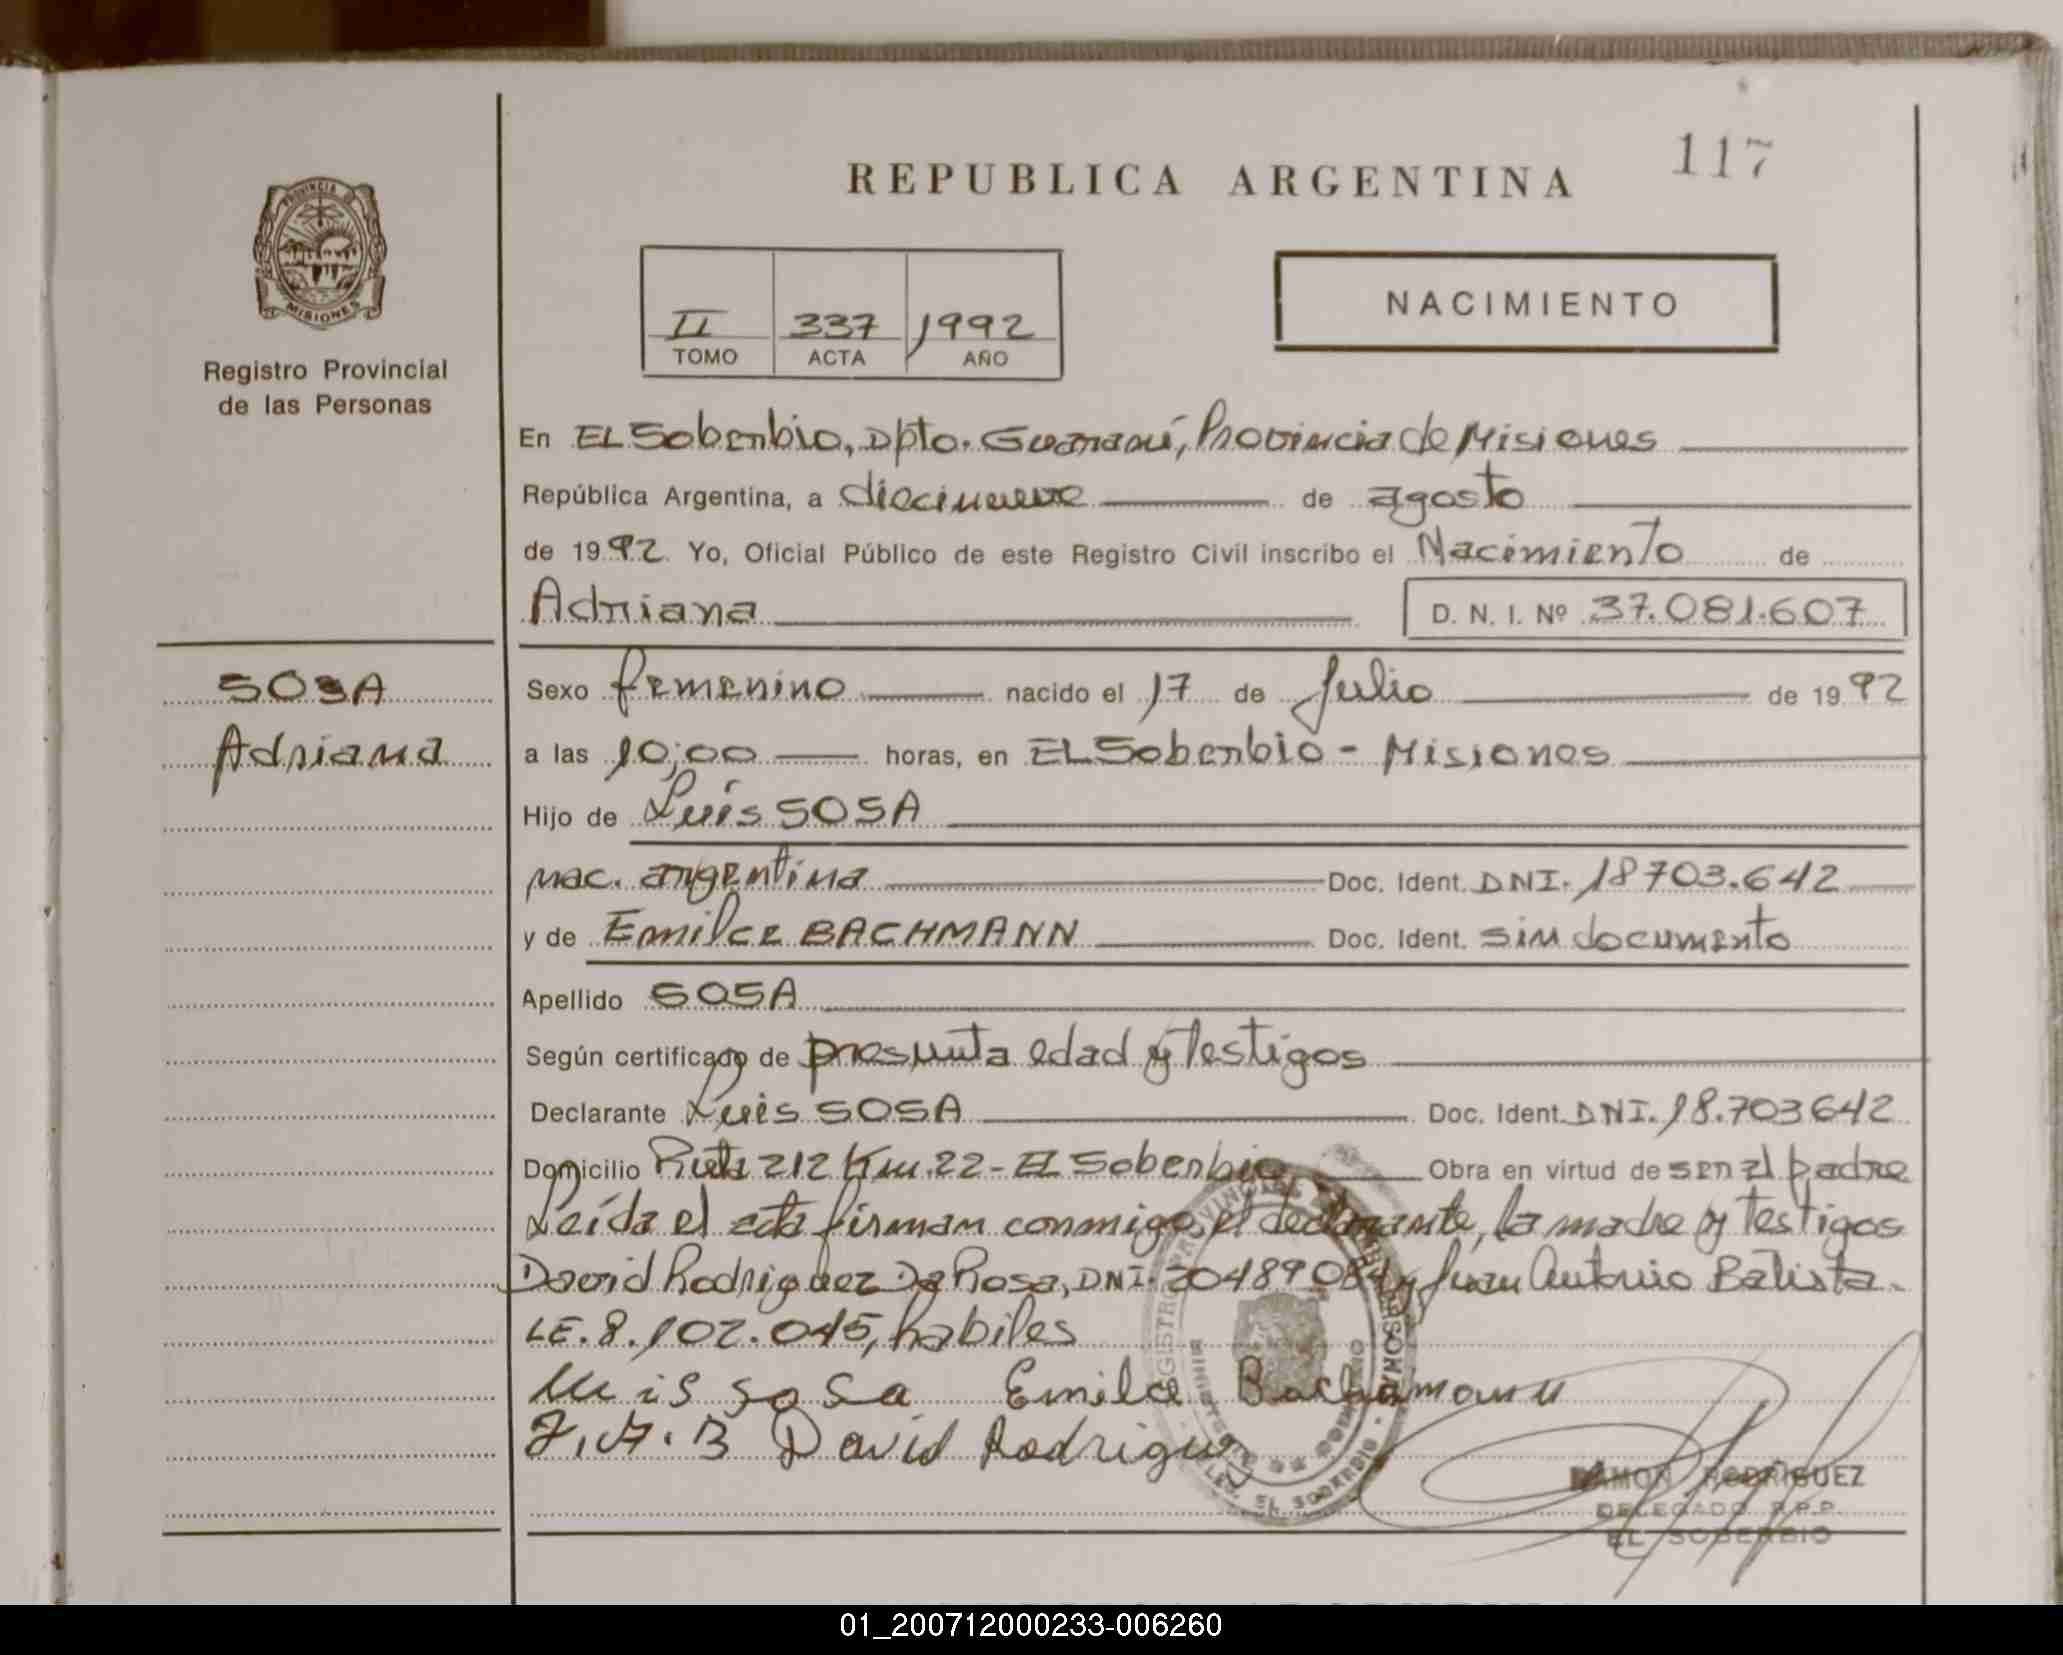 117
REPUBLICA ARGENTINA
PROVINCIA DE
MISIONES
Registro Provincial
de las Personas
II 337 1992
TOMO ACTA AÑO
NACIMIENTO
En EL Soberbio, Dpto. Guaraní, Provincia de Misiones
República Argentina, a diecinueve de agosto
de 1992 Yo, Oficial Público de este Registro Civil inscribo el Nacimiento de
Adriana D. N. I. Nº 37.081.607
SOSA
Adriana
Sexo femenino nacido el 17 de Julio de 1992
a las 10:00 horas, en EL Soberbio - Misiones
Hijo de Luis SOSA
nac. argentina Doc. Ident. DNI. 18703.642
y de Emilce BACHMANN Doc. Ident. sin documento
Apellido SOSA
Según certificado de presunta edad y Testigos
Declarante Luis SOSA Doc. Ident. DNI. 18.703642
Domicilio Ruta 212 Km. 22 - EL Soberbio Obra en virtud de ser el padre
Leída el acta firman conmigo, el declarante, la madre y Testigos
David Rodriguez Da Rosa, DNI. 20489084 y Juan Antonio Batista.
LE. 8.102.045, habiles
Luis sosa Emilce Bachmann
J.A.B David Rodriguez
RAMON RODRIGUEZ
DELEGADO R.P.P.
EL SOBERBIO
01_200712000233-006260